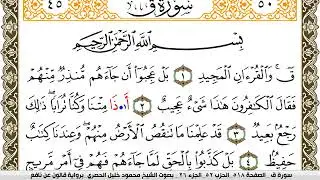 ٤٥ سورة ق ٥٠
بِسْمِ اللَّهِ الرَّحْمَٰنِ الرَّحِيمِ
قٓ وَالْقُرْءَانِ الْمَجِيدِ ١ بَلْ عَجِبُوٓا أَن جَآءَهُم مُّنذِرٌ مِّنْهُمْ
فَقَالَ الْكَٰفِرُونَ هَٰذَا شَيْءٌ عَجِيبٌ ٢ أَ۟ذَا مِتْنَا وَكُنَّا تُرَابًا ذَٰلِكَ
رَجْعٌۢ بَعِيدٌ ٣ قَدْ عَلِمْنَا مَا تَنقُصُ الْأَرْضُ مِنْهُمْ وَعِندَنَا كِتَٰبٌ
حَفِيظٌۢ ٤ بَلْ كَذَّبُوا بِالْحَقِّ لَمَّا جَآءَهُمْ فَهُمْ فِىٓ أَمْرٍ مَّرِيجٍ
سورة ق الصفحة ٥١٨ الحزب ٥٢ الجزء ٢٦ بصوت الشيخ محمود خليل الحصري برواية قالون عن نافع